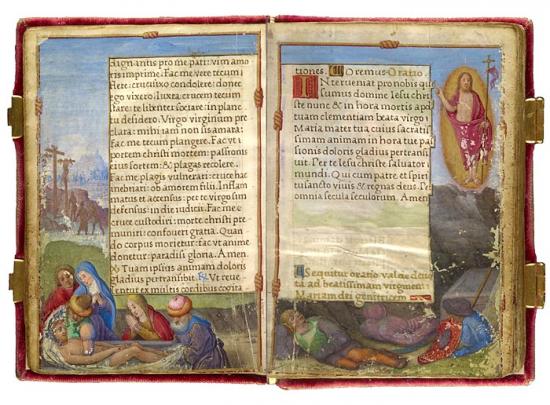 dignantis pro me pati: vim amo
ris imprime. Fac me vere tecum
flere: crucifixo condolere: donec
ego vixero. Iuxta crucem tecum
stare: te libenter sociare: in planc
tu desidero. Virgo virginum pre
clara: mihi iam non sis amara:
fac me tecum plangere. Fac vt
portem christi mortem: passionis
eius sortem: & plagas recolere.
Fac me plagis vulnerari: cruce hac
inebriari: ob amorem filii. Inflam
matus et accensus: per te virgo sim
defensus: in die iudicii. Fac me
cruce custodiri: morte christi pre
muniri: confoueri gratia. Quan
do corpus morietur: fac vt anime
donetur: paradisi gloria. Amen
Tuam ipsius animam doloris
gladius pertransibit. Vt reue
lentur ex multis cordibus cogita
tiones. Oremus. Oratio
Interueniat pro nobis que
sumus domine Iesu chri
ste nunc & in hora mortis apd
tuam clementiam beata virgo
Maria mater tua cuius sacratis
simam animam in hora tue pas
sionis doloris gladius pertransi
uit. Per te Iesu christe saluator
mundi. Qui cum patre et spiri
tu sancto viuis & regnas deus. Per
omnia secula seculorum. Amen
Sequitur oratio valde deuo
ta ad beatissimam virginem
Mariam dei genitricem